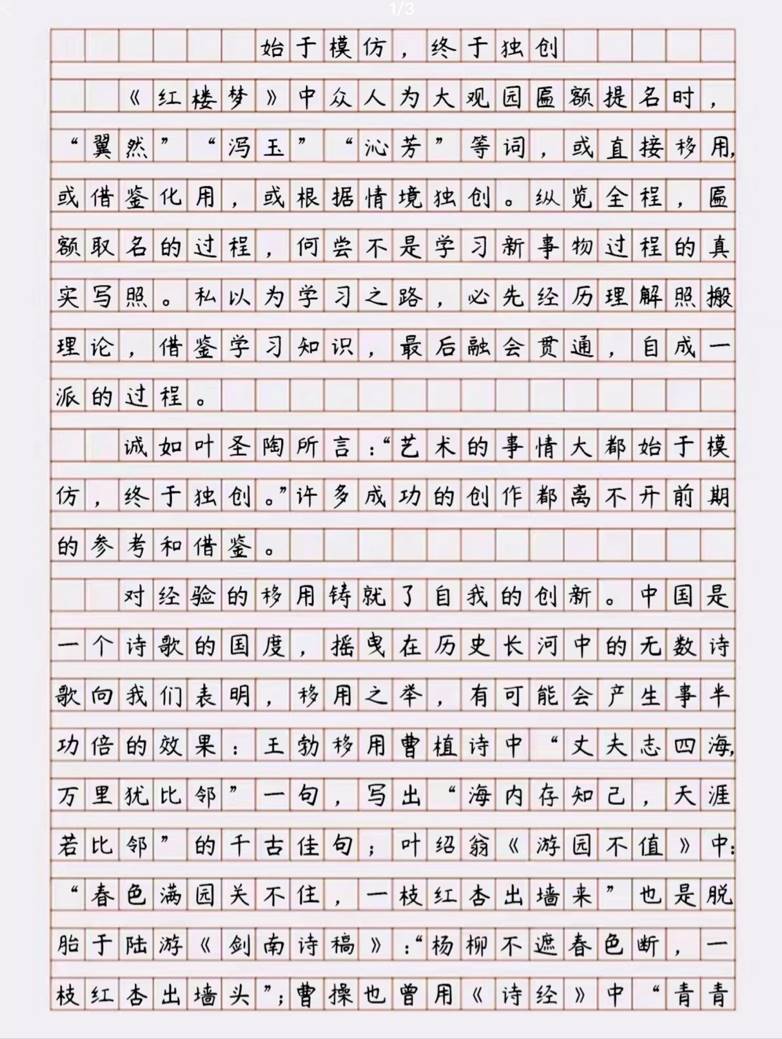 1/3
始于模仿，终于独创
《红楼梦》中众人为大观园匾额提名时，
“翼然”“泻玉”“沁芳”等词，或直接移用，
或借鉴化用，或根据情境独创。纵览全程，匾
额取名的过程，何尝不是学习新事物过程的真
实写照。私以为学习之路，必先经历理解照搬
理论，借鉴学习知识，最后融会贯通，自成一
派的过程。
诚如叶圣陶所言：“艺术的事情大都始于模
仿，终于独创。”许多成功的创作都离不开前期
的参考和借鉴。
对经验的移用铸就了自我的创新。中国是
一个诗歌的国度，摇曳在历史长河中的无数诗
歌向我们表明，移用之举，有可能会产生事半
功倍的效果：王勃移用曹植诗中“丈夫志四海，
万里犹比邻”一句，写出“海内存知己，天涯
若比邻”的千古佳句；叶绍翁《游园不值》中：
“春色满园关不住，一枝红杏出墙来”也是脱
胎于陆游《剑南诗稿》：“杨柳不遮春色断，一
枝红杏出墙头”；曹操也曾用《诗经》中“青青